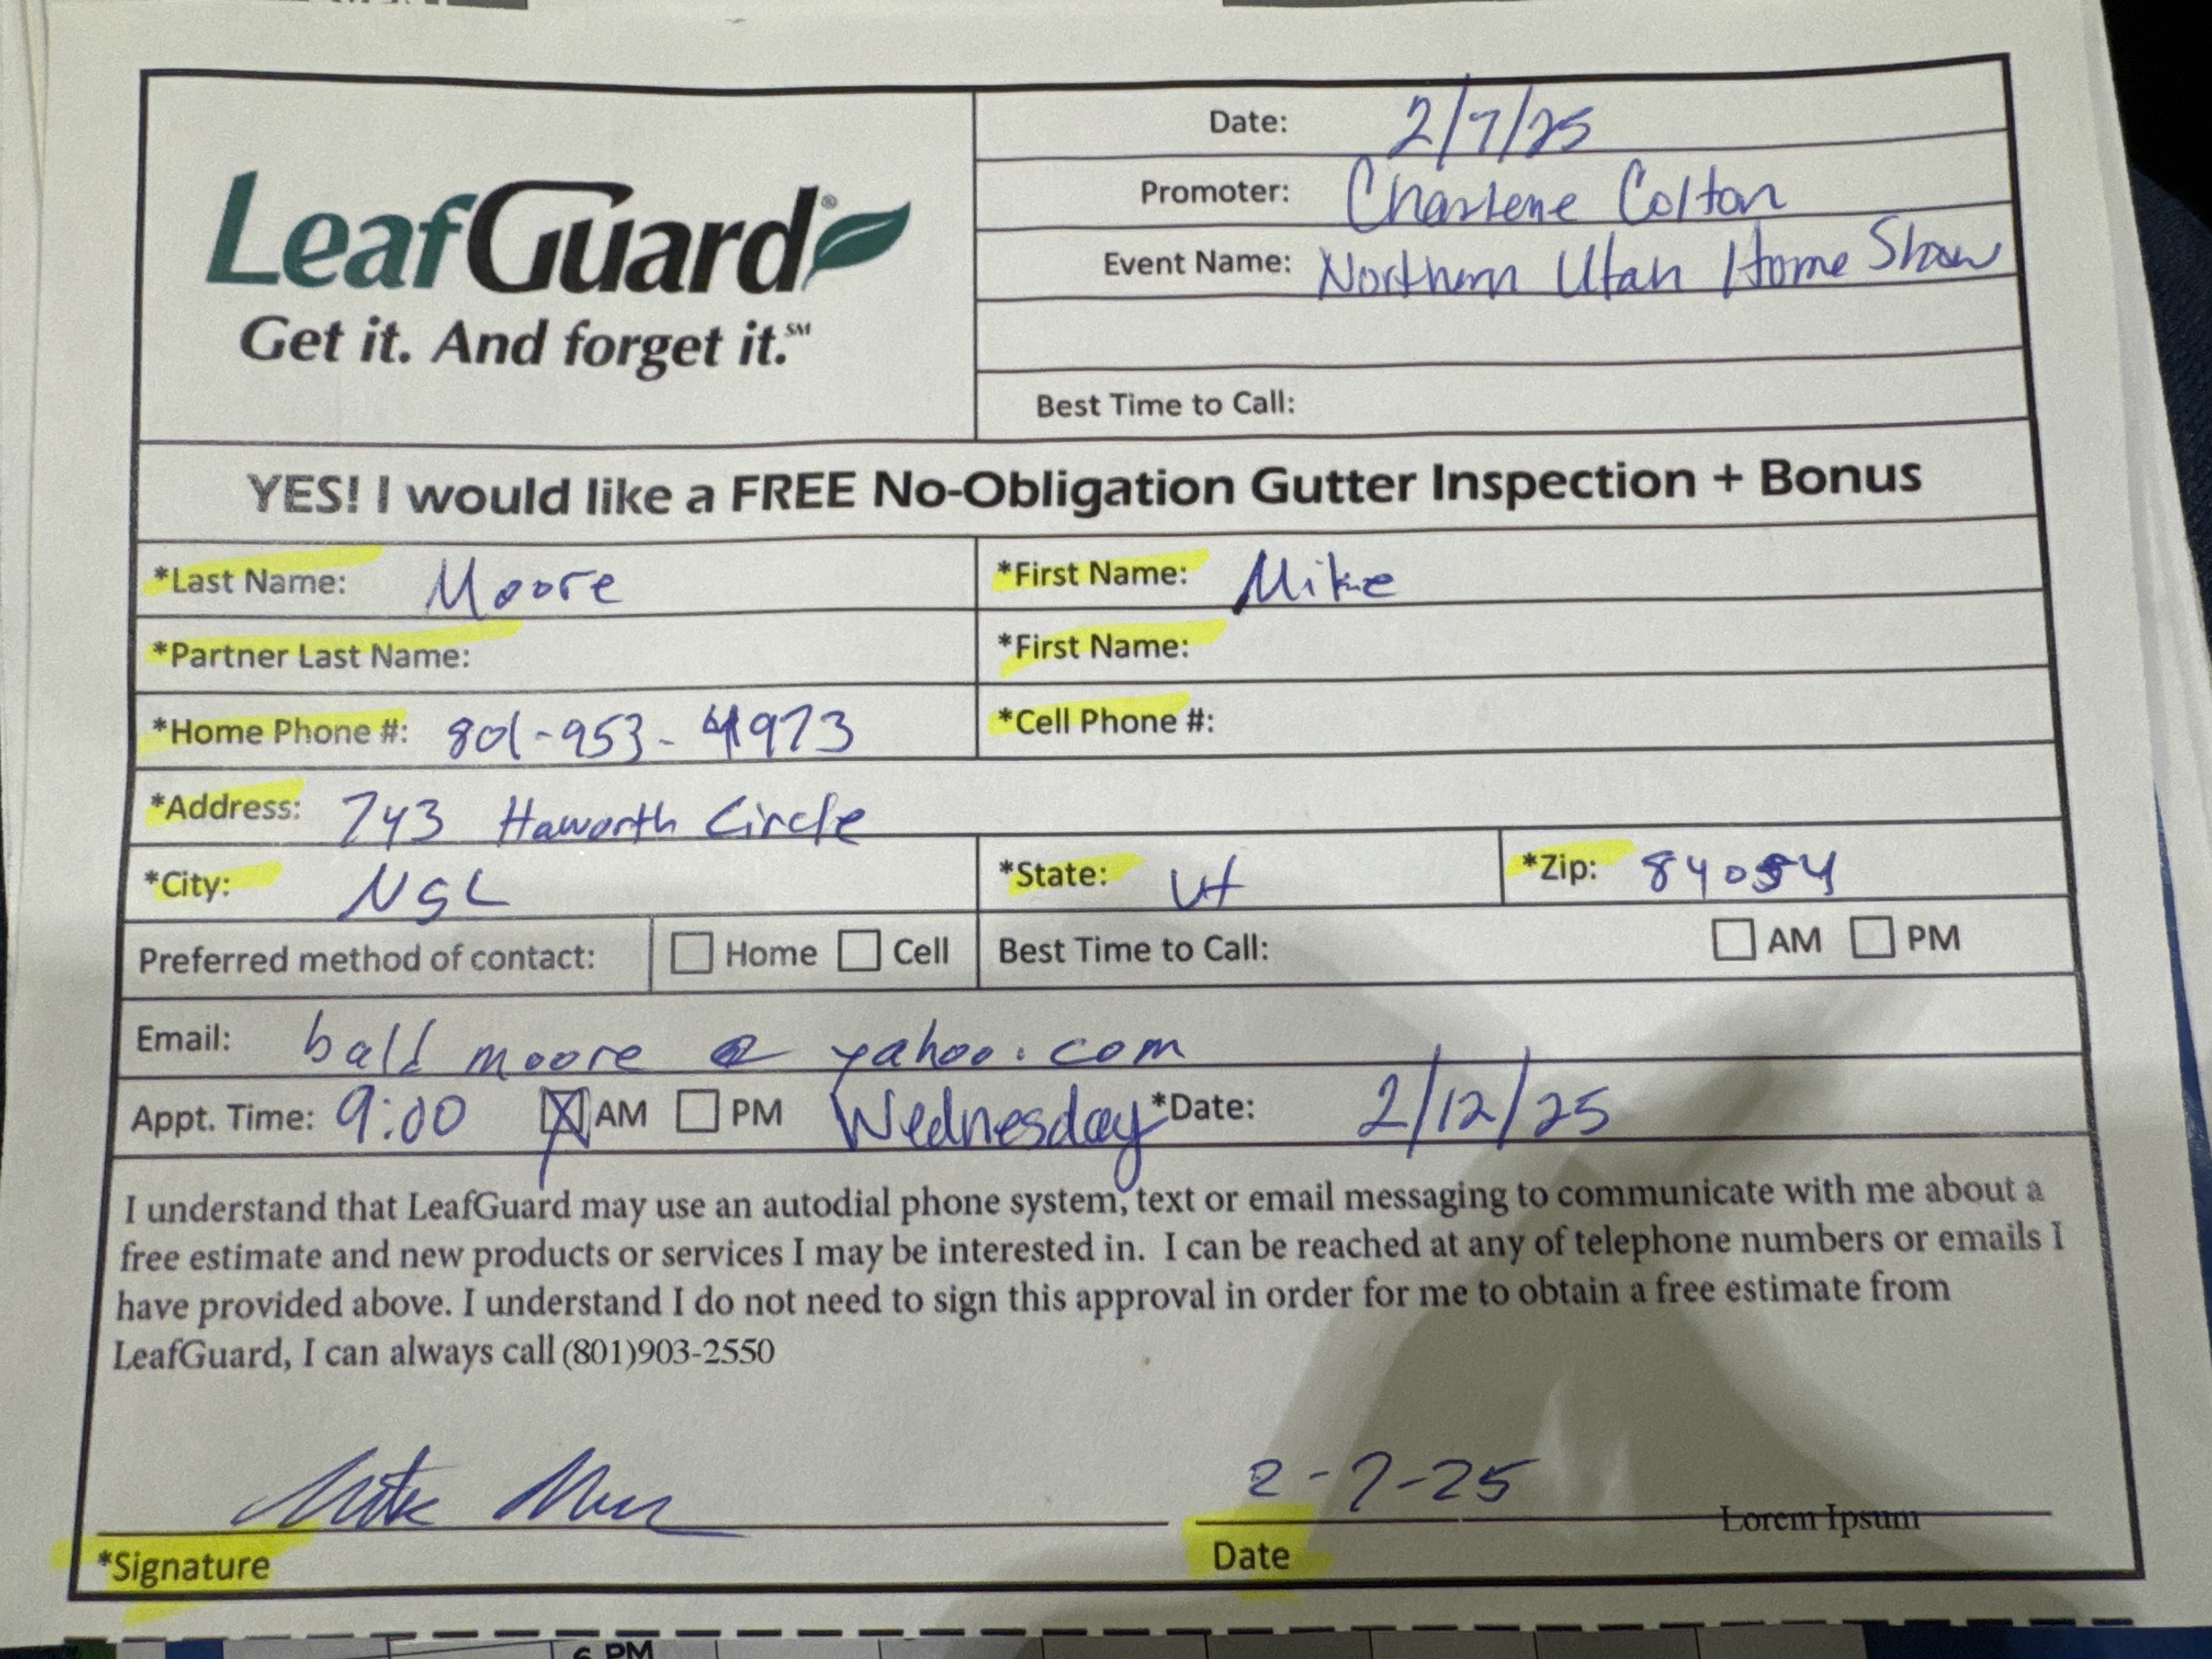 LeafGuard®
Get it. And forget it.℠
Date: 2/7/25
Promoter: Charlene Colton
Event Name: Northern Utah Home Show
Best Time to Call:
YES! I would like a FREE No-Obligation Gutter Inspection + Bonus
*Last Name: Moore *First Name: Mike
*Partner Last Name: *First Name:
*Home Phone #: 801-953-4973 *Cell Phone #:
*Address: 743 Haworth Circle
*City: NSL *State: Ut *Zip: 84054
Preferred method of contact: Home Cell Best Time to Call: AM PM
Email: baldmoore@yahoo.com
Appt. Time: 9:00 AM PM Wednesday *Date: 2/12/25
I understand that LeafGuard may use an autodial phone system, text or email messaging to communicate with me about a
free estimate and new products or services I may be interested in. I can be reached at any of telephone numbers or emails I
have provided above. I understand I do not need to sign this approval in order for me to obtain a free estimate from
LeafGuard, I can always call (801)903-2550
Mike 2-7-25 Lorem Ipsum
*Signature Date
6 PM